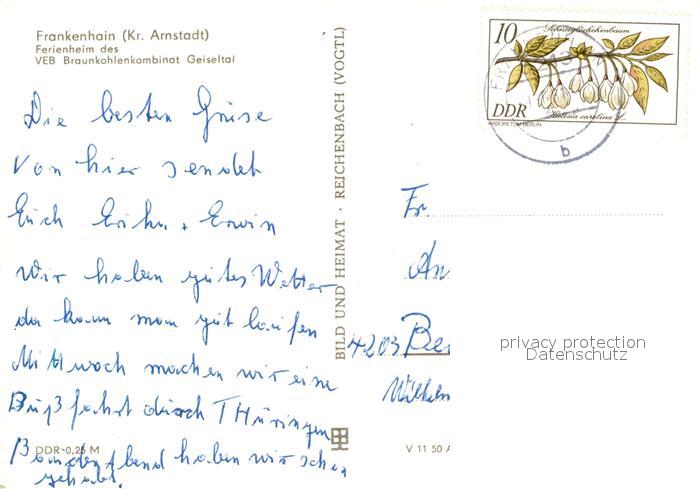 Frankenhain (Kr. Arnstadt)
Ferienheim des
VEB Braunkohlenkombinat Geiseltal
Die besten Grüse
von hier sendet
Euch Erika + Erwin
Wir haben gutes Wetter
da kann man gut laufen
Mittwoch machen wir eine
Bußfahrt durch THüringen
Bunden Abend haben wir schon
gehabt.
DDR 0,25 M
BILD UND HEIMAT · REICHENBACH (VOGTL)
V 11 50
10
Schneeglöckchenbaum
DDR
Halesia carolina L.
ARBORETUM BERLIN
b
Fr.
An
4203 Be
Wilhelm
privacy protection
Datenschutz